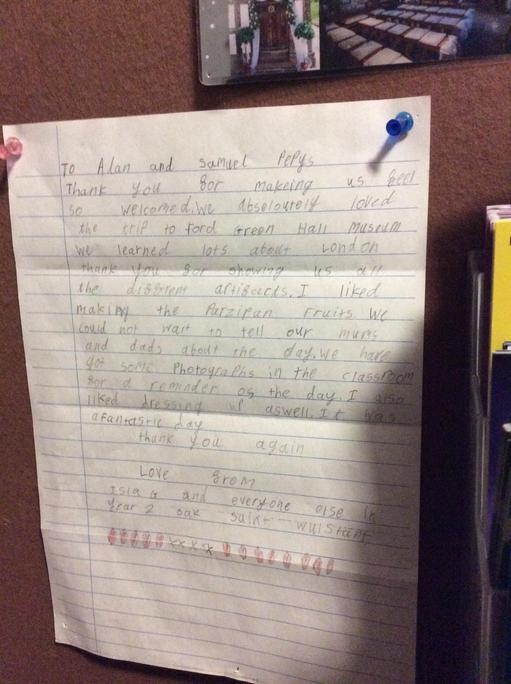 To Alan and Samuel Pepys
Thank you for makeing us feel
so welcomed. We absoloutely loved
the trip to ford Green Hall Museum
we learned lots about London
thank you for showing us all
the different artifacts. I liked
making the Parzipan Fruits. We
could not wait to tell our mums
and dads about the day. We have
got some Photographs in the classroom
for a reminder of the day. I also
liked dressing up aswell. It was
a fantastic day
thank you again
Love from
Isla G and everyone else in
Year 2 oak saint wulstans
xxxx